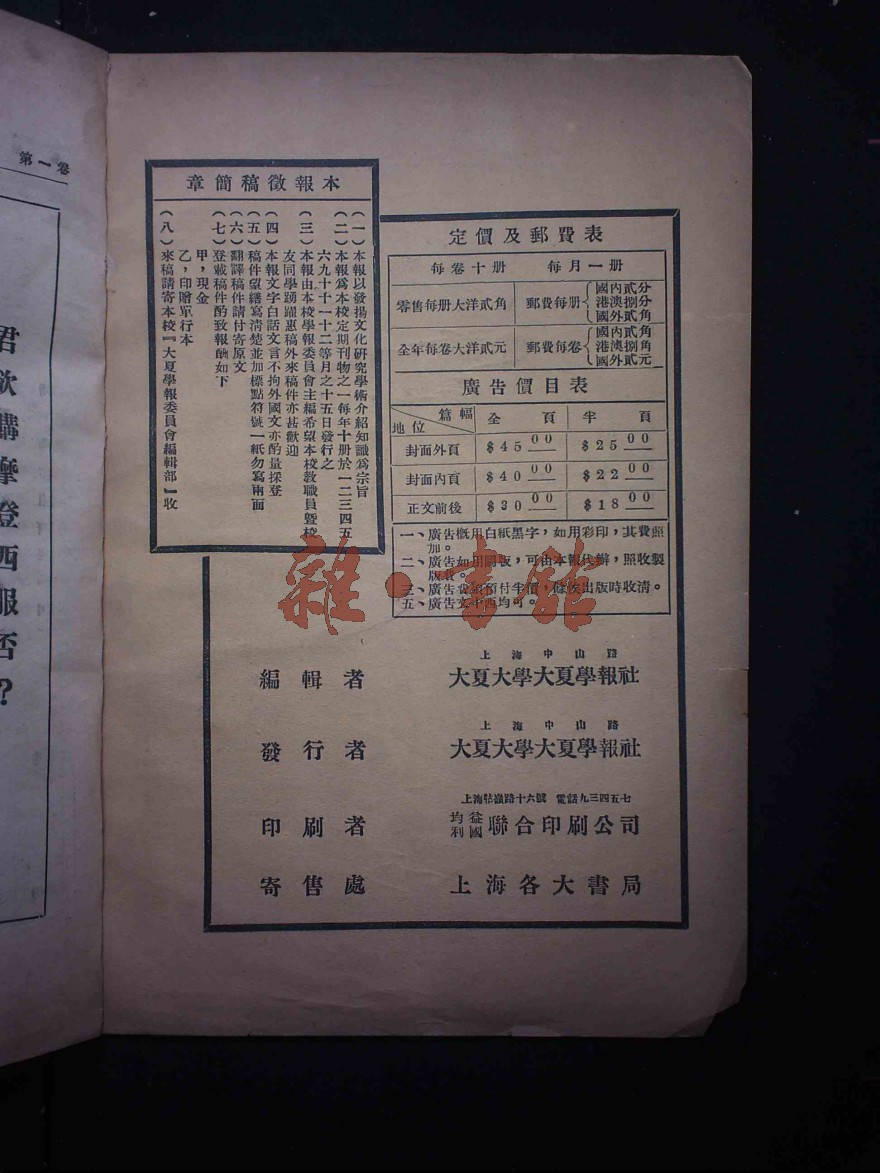 第一卷
君欲購摩登西服否？
本報徵稿簡章
（一）本報以發揚文化研究學術介紹知識爲宗旨
（二）本報爲本校定期刊物之一每年十册於一二三四五
六九十十一十二等月之十五日發行之
（三）本報由本校學報委員會主編希望本校教職員暨校
友同學踴躍惠稿外來稿件亦甚歡迎
（四）本報文字白話文言不拘外國文亦酌量採登
（五）稿件望繕寫清楚並加標點符號一紙勿寫兩面
（六）翻譯稿件請付寄原文
（七）登載稿件酌致報酬如下
甲，現金
乙，印贈單行本
（八）來稿請寄本校『大夏學報委員會編輯部』收
定價及郵費表
每卷十册 每月一册
零售每册大洋貳角 郵費每册 國內貳分 港澳捌分 國外貳角
全年每卷大洋貳元 郵費每卷 國內貳角 港澳捌角 國外貳元
廣告價目表
篇幅 地位 全頁 半頁
封面外頁 $45.00 $25.00
封面內頁 $40.00 $22.00
正文前後 $30.00 $18.00
一、廣告概用白紙黑字，如用彩印，其費照
加。
二、廣告如用銅版，可由本報代辦，照收製
版費。
三、廣告費須預付半價，餘俟出版時收清。
五、廣告文中西均可。
雜·書館
上海中山路
編輯者 大夏大學大夏學報社
上海中山路
發行者 大夏大學大夏學報社
上海牯嶺路十六號 電話九三四五七
印刷者 均益利國聯合印刷公司
寄售處 上海各大書局